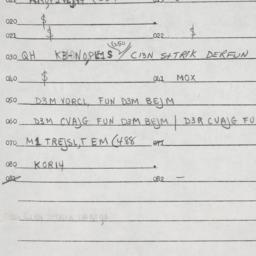 020 $
021 $ 022 $
030 QH C13N S+TR1K DERFUN
040 $ 041 MOX
050 D3M YORCL, FUN D3M BEJM
060 D3M CVAJG FUN D3M BEJM | D3R CVAJG FU
070 M1 TREJSL,T EM (488 071
080 KOR14
082 082 —